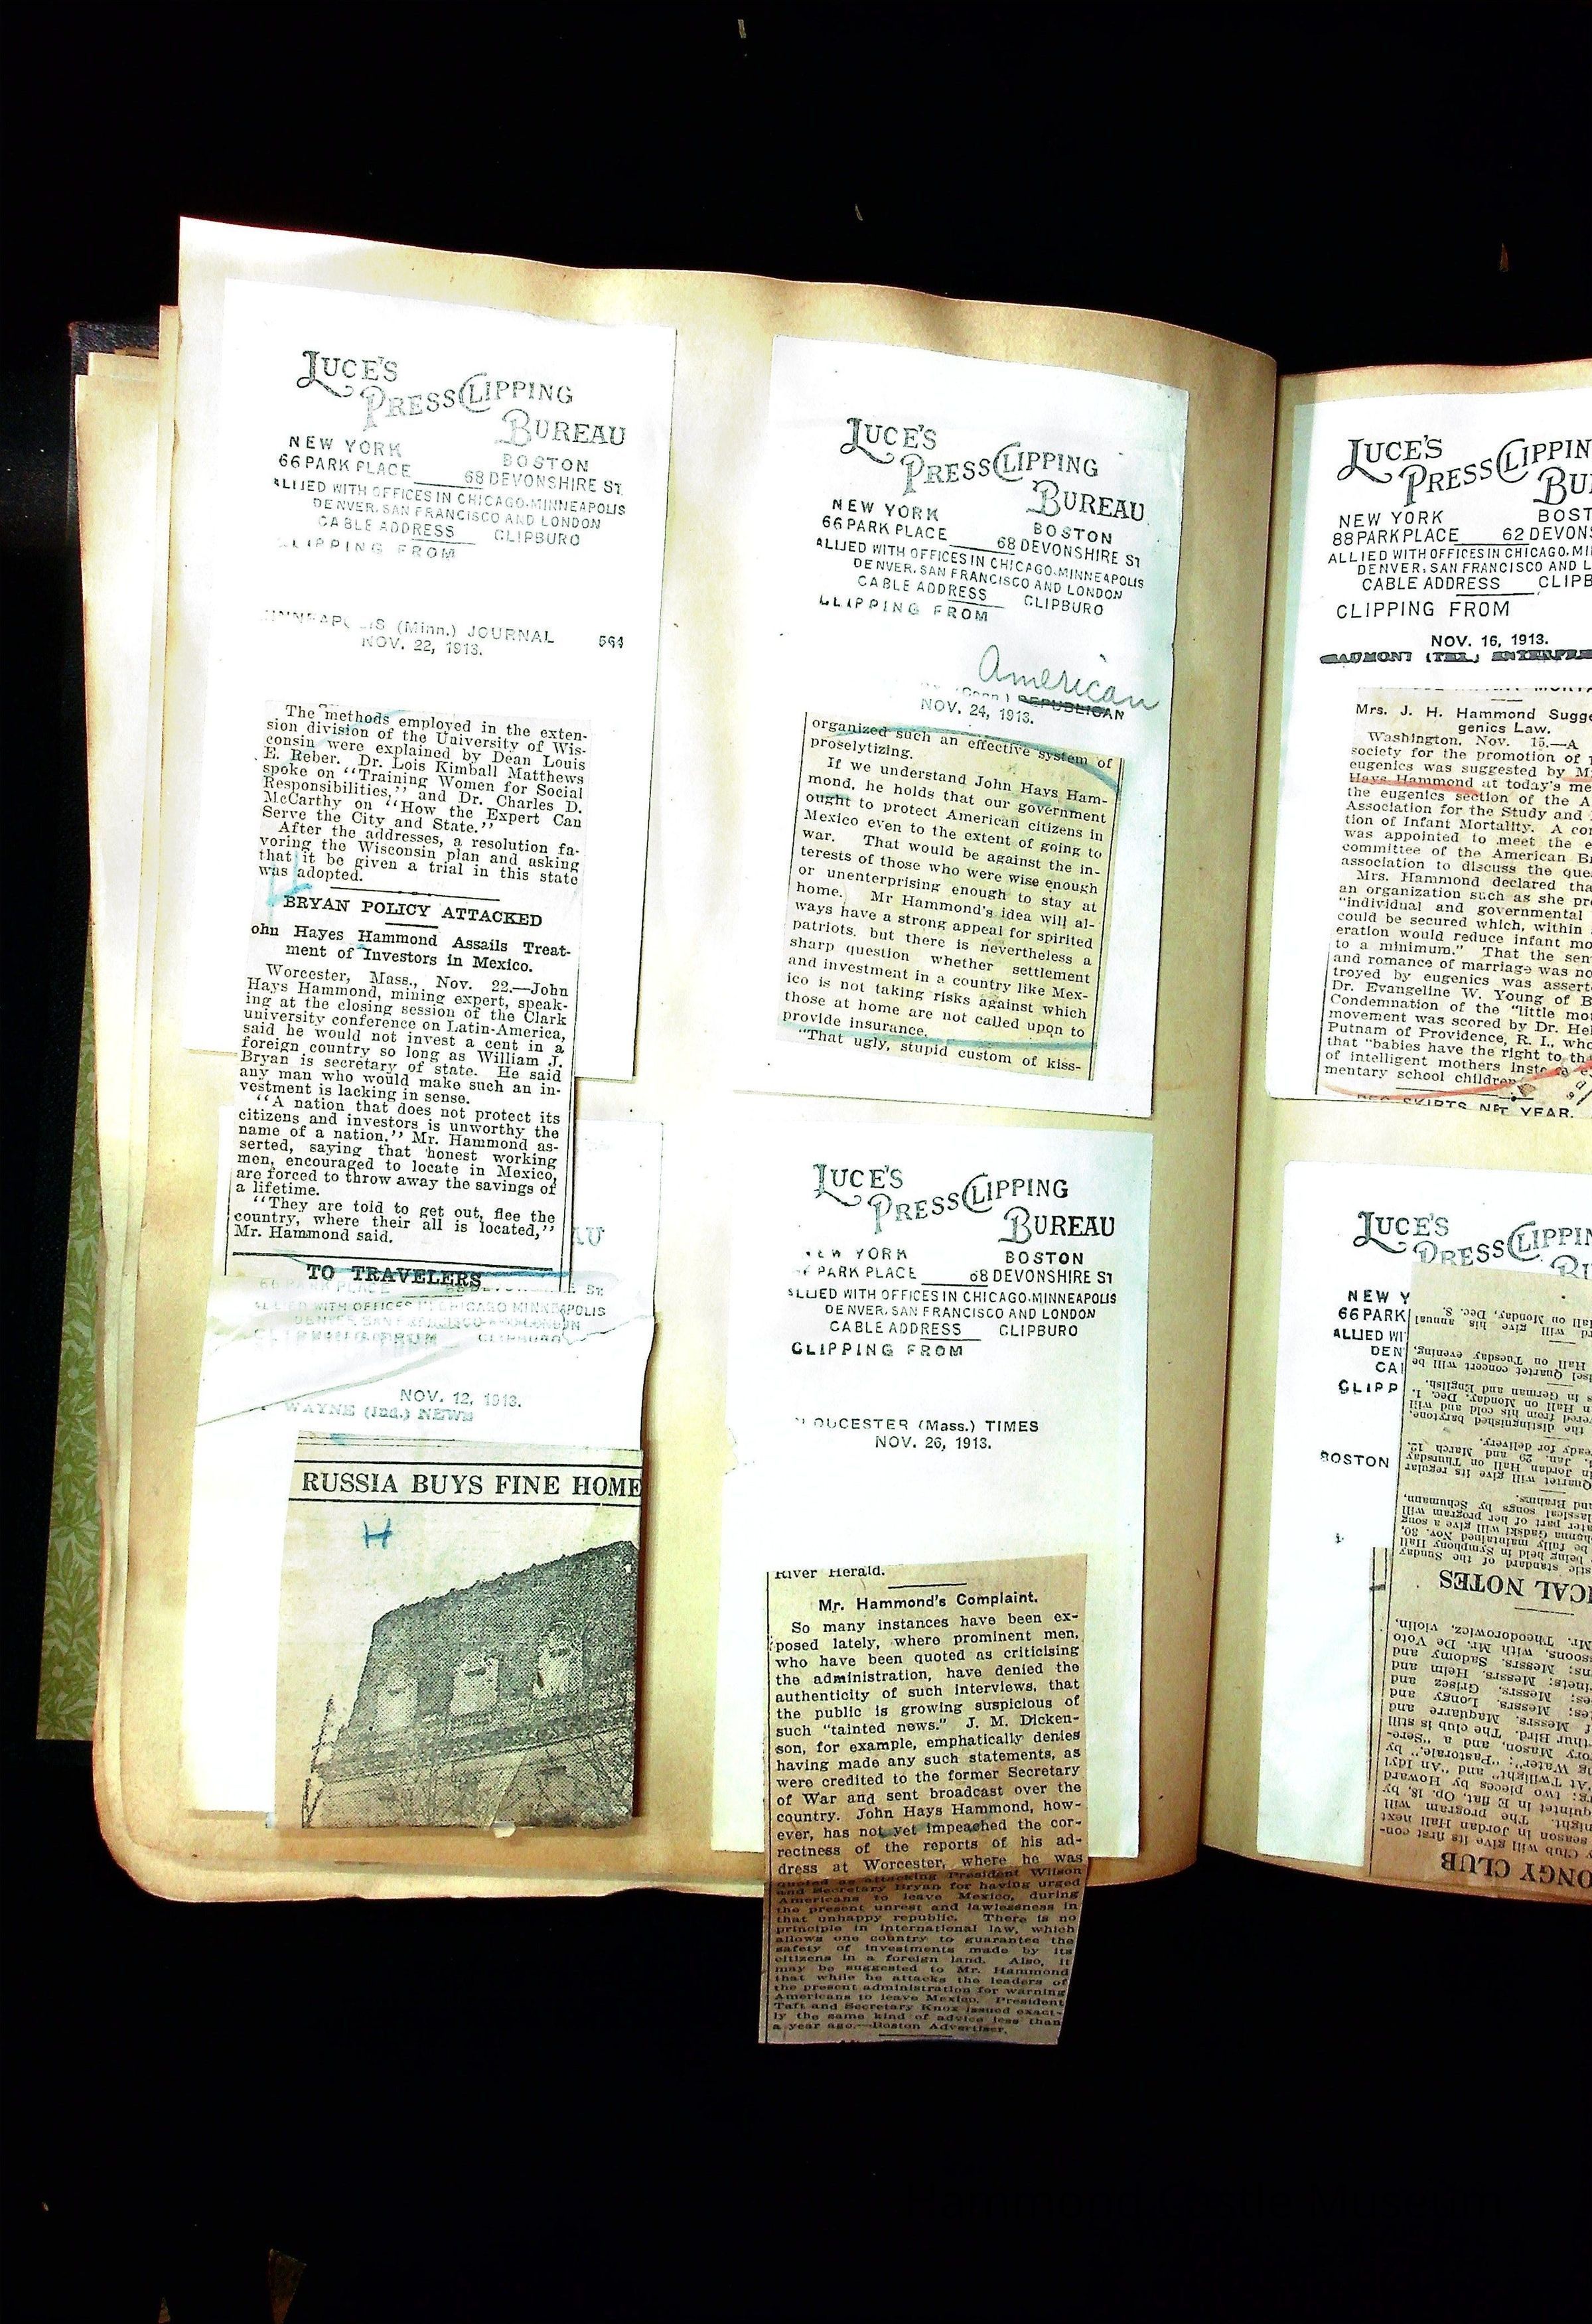 LUCE'S
PRESS CLIPPING
BUREAU
NEW YORK BOSTON
66 PARK PLACE 68 DEVONSHIRE ST.
ALLIED WITH OFFICES IN CHICAGO. MINNEAPOLIS
DENVER, SAN FRANCISCO AND LONDON
CABLE ADDRESS CLIPBURO
CLIPPING FROM
(Minn.) JOURNAL 564
NOV. 22, 1913.
The methods employed in the exten-
sion division of the University of Wis-
consin were explained by Dean Louis
E. Reber. Dr. Lois Kimball Matthews
spoke on "Training Women for Social
Responsibilities," and Dr. Charles D.
McCarthy on "How the Expert Can
Serve the City and State."
After the addresses, a resolution fa-
voring the Wisconsin plan and asking
that it be given a trial in this state
was adopted.
BRYAN POLICY ATTACKED
ohn Hayes Hammond Assails Treat-
ment of Investors in Mexico.
Worcester, Mass., Nov. 22.—John
Hays Hammond, mining expert, speak-
ing at the closing session of the Clark
university conference on Latin-America,
said he would not invest a cent in a
foreign country so long as William J.
Bryan is secretary of state. He said
any man who would make such an in-
vestment is lacking in sense.
"A nation that does not protect its
citizens and investors is unworthy the
name of a nation," Mr. Hammond as-
serted, saying that honest working
men, encouraged to locate in Mexico,
are forced to throw away the savings of
a lifetime.
"They are told to get out, flee the
country, where their all is located,"
Mr. Hammond said.
TO TRAVELERS
AU
ST.
ALLIED WITH OFFICES IN CHICAGO MINNEAPOLIS
NOV. 12, 1913.
WAYNE (Ind.) NEWS
RUSSIA BUYS FINE HOME
H
LUCE'S
PRESS CLIPPING
BUREAU
NEW YORK BOSTON
66 PARK PLACE 68 DEVONSHIRE ST
ALLIED WITH OFFICES IN CHICAGO. MINNEAPOLIS
DENVER. SAN FRANCISCO AND LONDON
CABLE ADDRESS CLIPBURO
CLIPPING FROM
American
(Conn.) REPUBLICAN
NOV. 24, 1913.
organized such an effective system of
proselytizing.
If we understand John Hays Ham-
mond, he holds that our government
ought to protect American citizens in
Mexico even to the extent of going to
war. That would be against the in-
terests of those who were wise enough
or unenterprising enough to stay at
home. Mr Hammond's idea will al-
ways have a strong appeal for spirited
patriots, but there is nevertheless a
sharp question whether settlement
and investment in a country like Mex-
ico is not taking risks against which
those at home are not called upon to
provide insurance.
"That ugly, stupid custom of kiss-
LUCE'S
PRESS CLIPPING
BUREAU
YORK BOSTON
PARK PLACE 68 DEVONSHIRE ST
ALLIED WITH OFFICES IN CHICAGO. MINNEAPOLIS
DENVER, SAN FRANCISCO AND LONDON
CABLE ADDRESS CLIPBURO
CLIPPING FROM
OUCESTER (Mass.) TIMES
NOV. 26, 1913.
River Herald.
Mr. Hammond's Complaint.
So many instances have been ex-
posed lately, where prominent men,
who have been quoted as criticising
the administration, have denied the
authenticity of such interviews, that
the public is growing suspicious of
such "tainted news." J. M. Dicken-
son, for example, emphatically denies
having made any such statements, as
were credited to the former Secretary
of War and sent broadcast over the
country. John Hays Hammond, how-
ever, has not yet impeached the cor-
rectness of the reports of his ad-
dress at Worcester, where he was
quoted as attacking President Wilson
and Secretary Bryan for having urged
Americans to leave Mexico, during
the present unrest and lawlessness in
that unhappy republic. There is no
principle in international law, which
allows one country to guarantee the
safety of investments made by its
citizens in a foreign land. Also, it
may be suggested to Mr. Hammond
that while he attacks the leaders of
the present administration for warning
Americans to leave Mexico, President
Taft and Secretary Knox issued exact-
ly the same kind of advice less than
a year ago.—Boston Advertiser.
LUCE'S
PRESS CLIPPIN
BU
NEW YORK BOST
88 PARK PLACE 62 DEVONS
ALLIED WITH OFFICES IN CHICAGO. MI
DENVER, SAN FRANCISCO AND L
CABLE ADDRESS CLIPB
CLIPPING FROM
NOV. 16, 1913.
Mrs. J. H. Hammond Sugge
genics Law.
Washington, Nov. 15.—A
society for the promotion of
eugenics was suggested by M
Hays Hammond at today's me
the eugenics section of the A
Association for the Study and
tion of Infant Mortality. A co
was appointed to meet the e
committee of the American B
association to discuss the que
Mrs. Hammond declared tha
an organization such as she pr
"individual and governmental
could be secured which, within
eration would reduce infant mo
to a minimum." That the sen
and romance of marriage was no
troyed by eugenics was assert
Dr. Evangeline W. Young of B
Condemnation of the "little mo
movement was scored by Dr. He
Putnam of Providence, R. I., who
that "babies have the right to th
of intelligent mothers inste
mentary school children
SKIRTS N YEAR.
LUCE'S
PRESS CLIPPIN
NEW Y
66 PARK
ALLIED WI
DEN
CA
CLIPP
BOSTON
ONGY CLUB
y Club will give its first con-
season in Jordan Hall next
night. The program will
quintet in E flat, Op. 18, by
rg; two pieces by Howard
"At Twilight" and "An Idyl
ng Water"; "Pastorale," by
ory Mason, and a "Sere-
thur Bird. The club is still
f Messrs. Maquarre and
es; Messrs. Longy and
Messrs. Grisez and
rinets; Messrs. Helm and
ns; Messrs. Sadony and
ssoons, with Mr. De Voto
Mr. Theodorowicz, violin,
ICAL NOTES
stic standard of the Sunday
being held in Symphony Hall
be fully maintained Nov. 30,
hanna Gadski will give a song
ter part of her program will
classical songs by Schumann,
and Brahms.
Quartet will give its regular
in Jordan Hall on Thursday
Jan. 29 and March 12.
eady for delivery.
the distinguished barytone,
ered from his cold and will
n Hall on Monday, Dec. 1.
s in German and English.
sel Quartet concert will be
Hall on Tuesday evening,
rd will give his annual
Hall on Monday, Dec. 8.